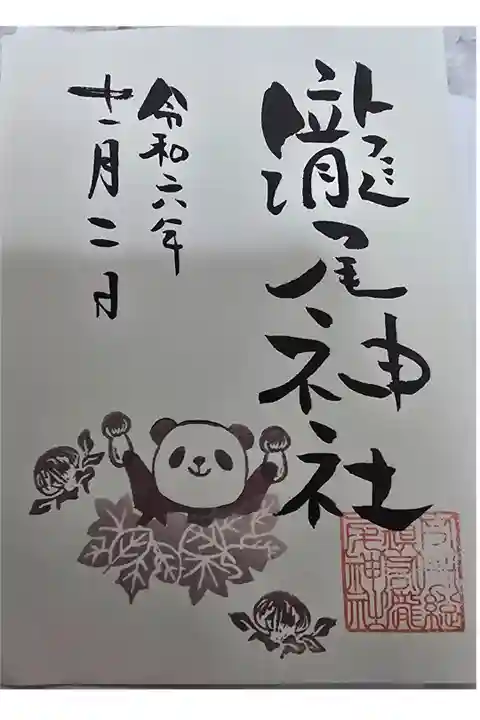 瀧尾神社
令和六年
十一月二日
尾神社